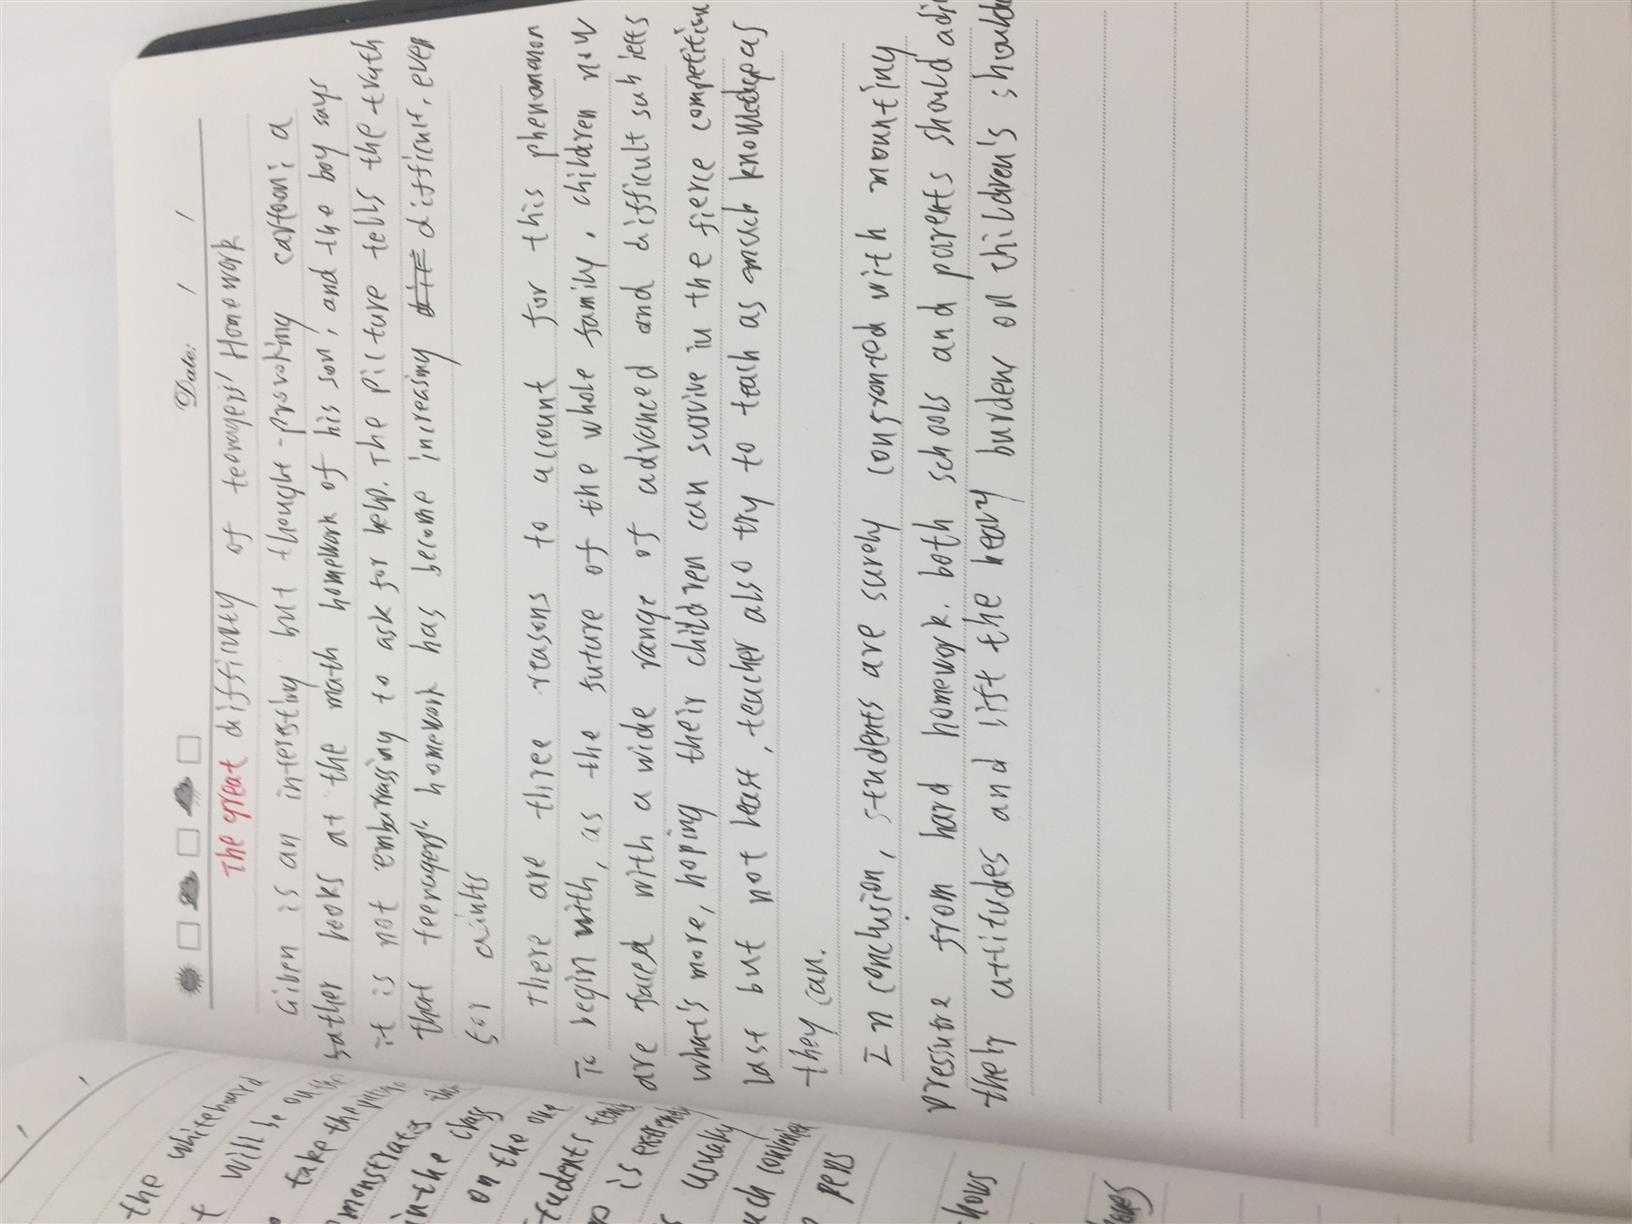 Date: / /
The great difficulty of teenagers' Homework
Given is an interesting but thought-provoking cartoon: a
father looks at the math homework of his son, and the boy says
it is not embarrassing to ask for help. The picture tells the truth
that teenagers' homework has become increasing difficult, even
for
There are three reasons to account for this phenomenon
To begin with, as the future of the whole family, children now
are faced with a wide range of advanced and difficult subjects
what's more, hoping their children can survive in the fierce competition
last but not least, teacher also try to teach as much knowledge as
they can.
In conclusion, students are surely confronted with mounting
pressure from hard homework. both schools and parents should
their attitudes and lift the heavy burden on children's
the whiteboard
will be on the
take the
in the class
on the one
students
is
usually
pens